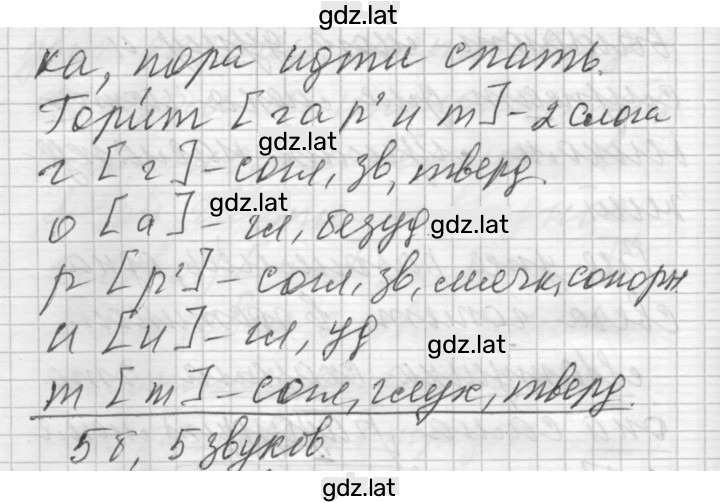 gdz.lat
ка, пора идти спать.
Гори́т [гар'ит] - 2 слога
gdz.lat
г [г] - согл, зв, тверд.
gdz.lat
о [а] - гл, безуд. gdz.lat
р [р'] - согл, зв, мягк, сонорн.
и [и] - гл, уд
gdz.lat
т [т] - согл, глух, тверд.
5 б, 5 звуков.
gdz.lat